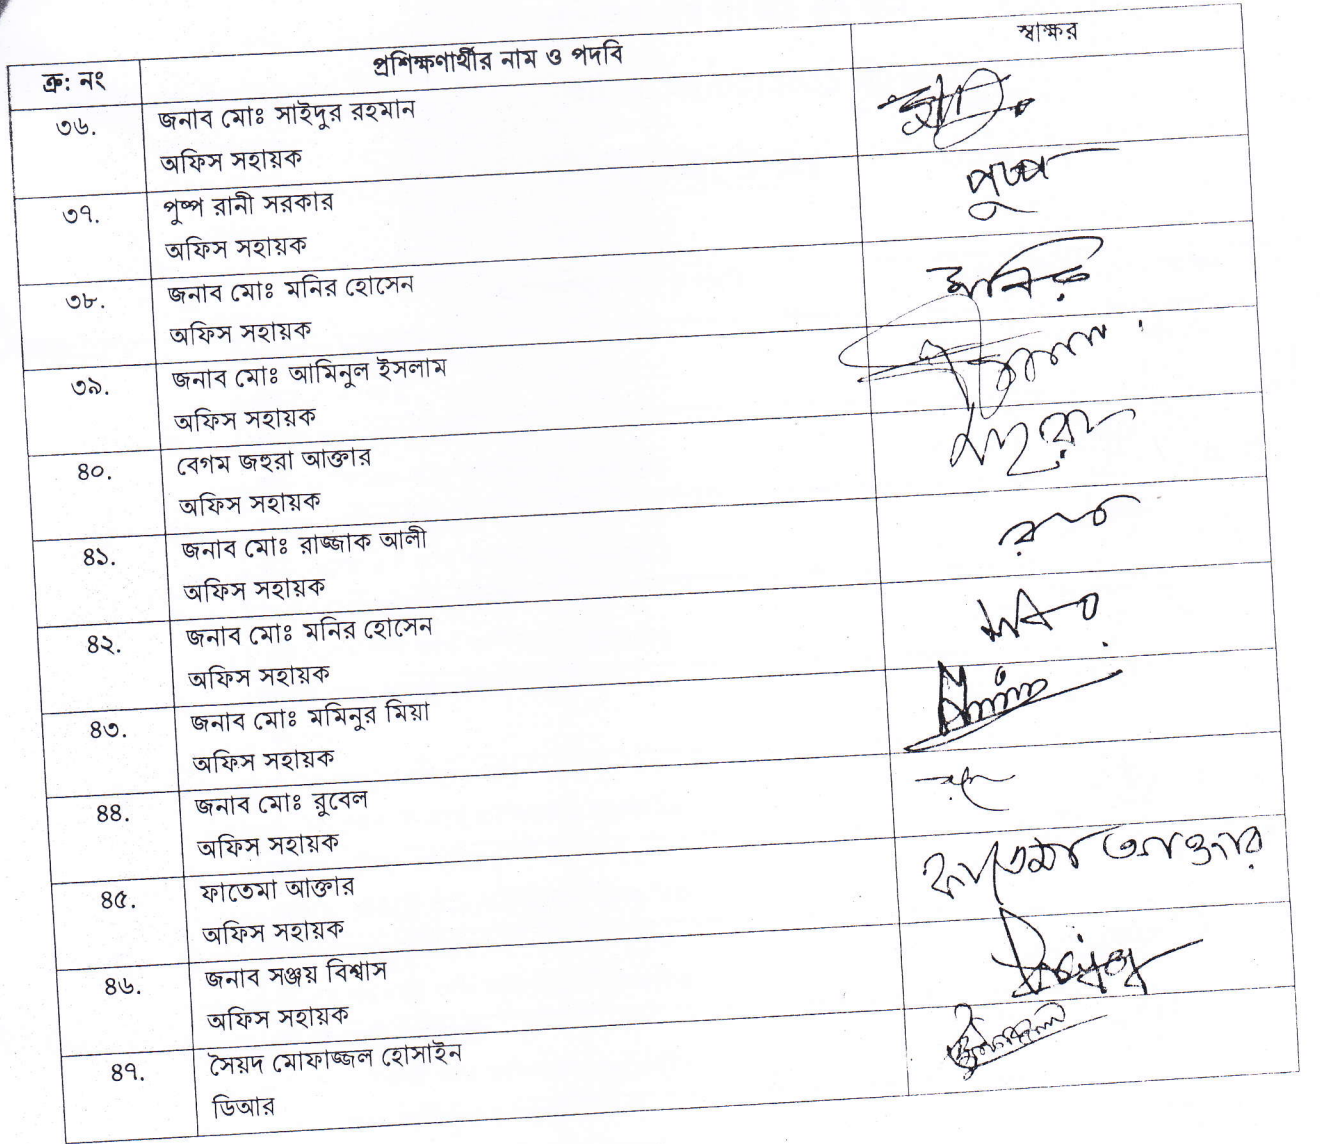 ক্র: নং প্রশিক্ষণার্থীর নাম ও পদবি স্বাক্ষর
৩৬. জনাব মোঃ সাইদুর রহমান
অফিস সহায়ক
৩৭. পুষ্প রানী সরকার পুষ্প
অফিস সহায়ক
৩৮. জনাব মোঃ মনির হোসেন মনির
অফিস সহায়ক
৩৯. জনাব মোঃ আমিনুল ইসলাম
অফিস সহায়ক
৪০. বেগম জহুরা আক্তার
অফিস সহায়ক
৪১. জনাব মোঃ রাজ্জাক আলী
অফিস সহায়ক
৪২. জনাব মোঃ মনির হোসেন
অফিস সহায়ক
৪৩. জনাব মোঃ মমিনুর মিয়া
অফিস সহায়ক
৪৪. জনাব মোঃ রুবেল
অফিস সহায়ক
৪৫. ফাতেমা আক্তার ফাতেমা আক্তার
অফিস সহায়ক
৪৬. জনাব সঞ্জয় বিশ্বাস
অফিস সহায়ক
৪৭. সৈয়দ মোফাজ্জল হোসাইন
ডিআর